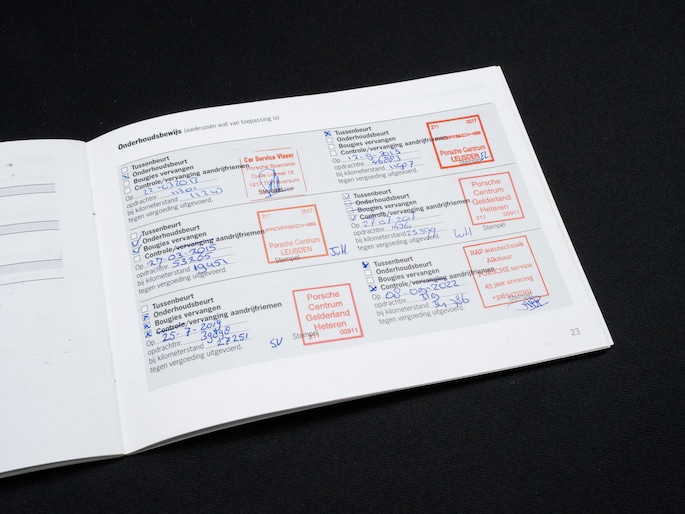 Onderhoudsbewijs (aankruisen wat van toepassing is)
Tussenbeurt
Onderhoudsbeurt
Bougies vervangen
Controle/vervanging aandrijfriemen
Op
opdrachtnr.
bij kilometerstand
tegen vergoeding uitgevoerd.
Car Service Visser
Porsche Specialist
Stempel
Tussenbeurt
Onderhoudsbeurt
Bougies vervangen
Controle/vervanging aandrijfriemen
Op 27-03-2015
opdrachtnr. 53265
bij kilometerstand 19451
tegen vergoeding uitgevoerd.
211 0017
PORSCHE
Porsche Centrum
LEUSDEN
Stempel
Tussenbeurt
Onderhoudsbeurt
Bougies vervangen
Controle/vervanging aandrijfriemen
Op 25-7-2019
opdrachtnr. 39898
bij kilometerstand 27251
tegen vergoeding uitgevoerd.
Porsche
Centrum
Gelderland
Heteren
211 00911
Stempel
SV
Tussenbeurt
Onderhoudsbeurt
Bougies vervangen
Controle/vervanging aandrijfriemen
Op 12-9-2013
opdrachtnr. 46883
bij kilometerstand 11907
tegen vergoeding uitgevoerd.
211 0017
PORSCHE
Porsche Centrum
LEUSDEN
Tussenbeurt
Onderhoudsbeurt
Bougies vervangen
Controle/vervanging aandrijfriemen
Op 27-07-2017
opdrachtnr.
bij kilometerstand 25399
tegen vergoeding uitgevoerd.
Porsche
Centrum
Gelderland
Heteren
211 00911
Stempel
WH
Tussenbeurt
Onderhoudsbeurt
Bougies vervangen
Controle/vervanging aandrijfriemen
Op 08-09-2022
opdrachtnr. 319
bij kilometerstand 34386
tegen vergoeding uitgevoerd.
RAP autotechniek
Alkmaar
PORSCHE service
45 jaar ervaring
23